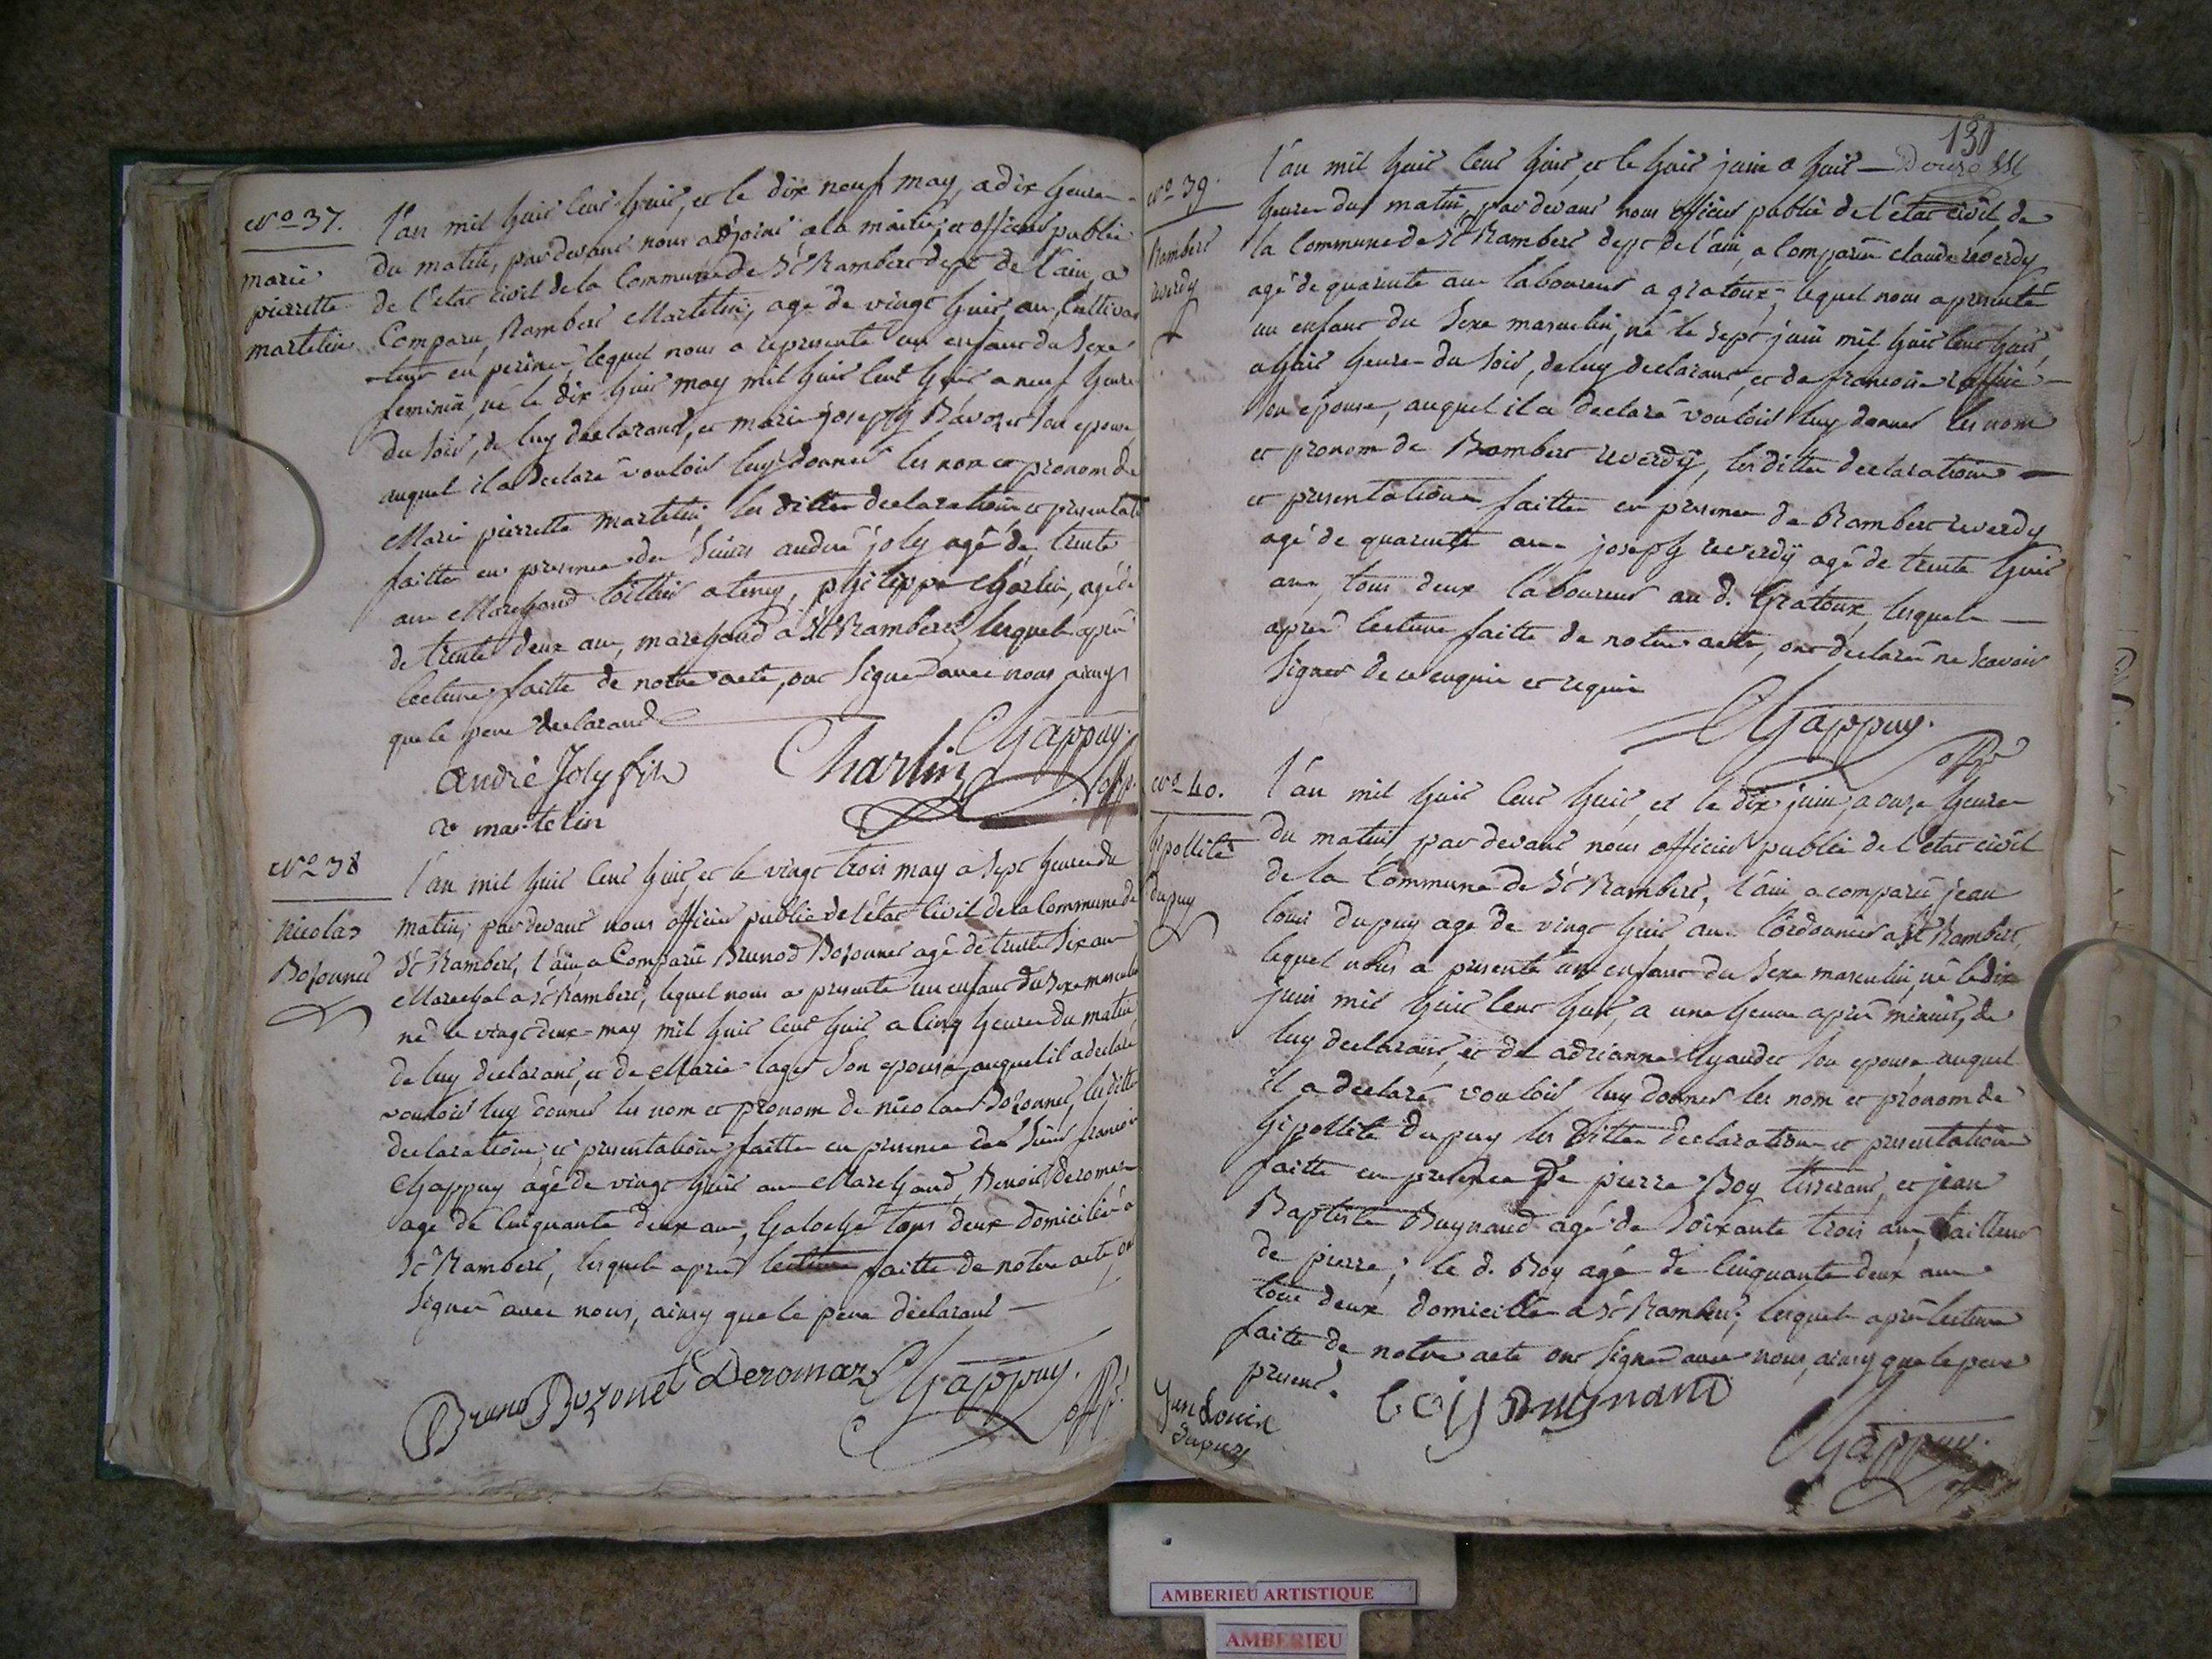 N.o 37.
marie
pierrette
martelin
l'an mil huit cent huit, et le dix neuf may, a dix heures
du matin, pardevant nous adjoint a la mairie, et officier public
de l'etat civil de la Commune de St Rambert dept de l'ain, a
Comparu, Rambert Martelin, agé de vingt huit ans, Cultiva
teur en lequel nous a representé un enfant du sexe
feminin, né le dix huit may mil huit cent huit a neuf heures
du soir, de luy declarant, et marie joseph Bavozet son epouse
auquel il a declaré vouloir luy donner les nom et pronom de
Marie pierrette Martelin, les dittes declaration et presentation
faittes en presence des sieurs andré joly agé de trente
ans Marchand toillier a tenay, philippe Charlin, agé de
de trente deux ans, marchand a St Rambert, lesquels après
lecture faitte de notre acte, ont signé avec nous ainsy
que le pere declarant
andré Joly fils Charlin Chappuy. off.
r martelin
N.o 38
nicolas
Bozonnet
l'an mil huit cent huit, et le vingt trois may a sept heures du
matin, pardevant nous officier public de l'état Civil de la Commune de
St Rambert, l'ain a Comparü Brunod Bozonnet agé de trente six ans
Marechal a St Rambert, lequel nous a presenté un enfant du sexe masculin
né le vingt deux may mil huit cent huit a Cinq heures du matin
de luy declarant, et de Marie laget son epouse, auquel il a declaré
vouloir luy donner les nom et pronom de nicolas Bozonnet, les dittes
declarations, et presentations faittes en presence des sieurs francois
Chappuy agé de vingt huit ans Marchand, Benoit Deromas
agé de Cinquante deux ans, Galoche tous deux domiciliés a
St Rambert, lesquels après lecture faitte de notre acte, on
signé avec nous, ainsy que le pere déclarant
Bruno Bozonet Deromas Chappuy. off.
130
N.o 39.
Rambert
reverdy
l'an mil huit cent huit, et le huit juin a huit
heures du matin, pardevant nous officier public de l'état civil, de
la Commune de St Rambert dept de l'ain, a Comparü claude reverdy
agé de quarante ans laboureur a gratoux, lequel nous a presenté
un enfant du sexe masculin, né le sept juin mil huit cent huit,
a huit heures du soir, de luy declarant, et de francoise
son epouse, auquel il a declaré vouloir luy donner les nom
et pronom de Rambert reverdÿ, les dittes declarations
et presentations faittes en presence de Rambert reverdy
agé de quarante ans joseph reverdÿ agé de trente huit
ans, tous deux laboureur au d. Gratoux, lesquels
après lecture faitte de notre acte, ont declaré ne scavoir
signer de ce enquis et requis
Chappuy.
off.
N.o 40.
hipollite
dupuy
l'an mil huit cent huit, et le dix juin, a onze heures
du matin pardevant nous officier public de l'etat civil
de la Commune de St Rambert, l'ain a comparü jean
louis dupuy agé de vingt huit ans Cordonnier a St Rambert,
lequel nous a presenté un enfant du sexe masculin, né le dix
juin mil huit cent huit, a une heure après minuit, de
luy declarant, et de adrianne son epouse auquel
il a declaré vouloir luy donner les nom et prónom de
hipollite dupuy les dittes declaration et presentation
faitte en presence de pierre Boy tisserant, et jean
Baptiste Bugnand agé de soixante trois ans, tailleur
de pierre, le d. Boy agé de Cinquante deux ans
tous deux domicilié a St Rambert, lesquels après lecture
faitte de notre acte ont signé avec nous, ainsy que le pere
present.
Jean Louis
dupuy
boy Bugnand
Chappuy.
AMBERIEU ARTISTIQUE
AMBERIEU